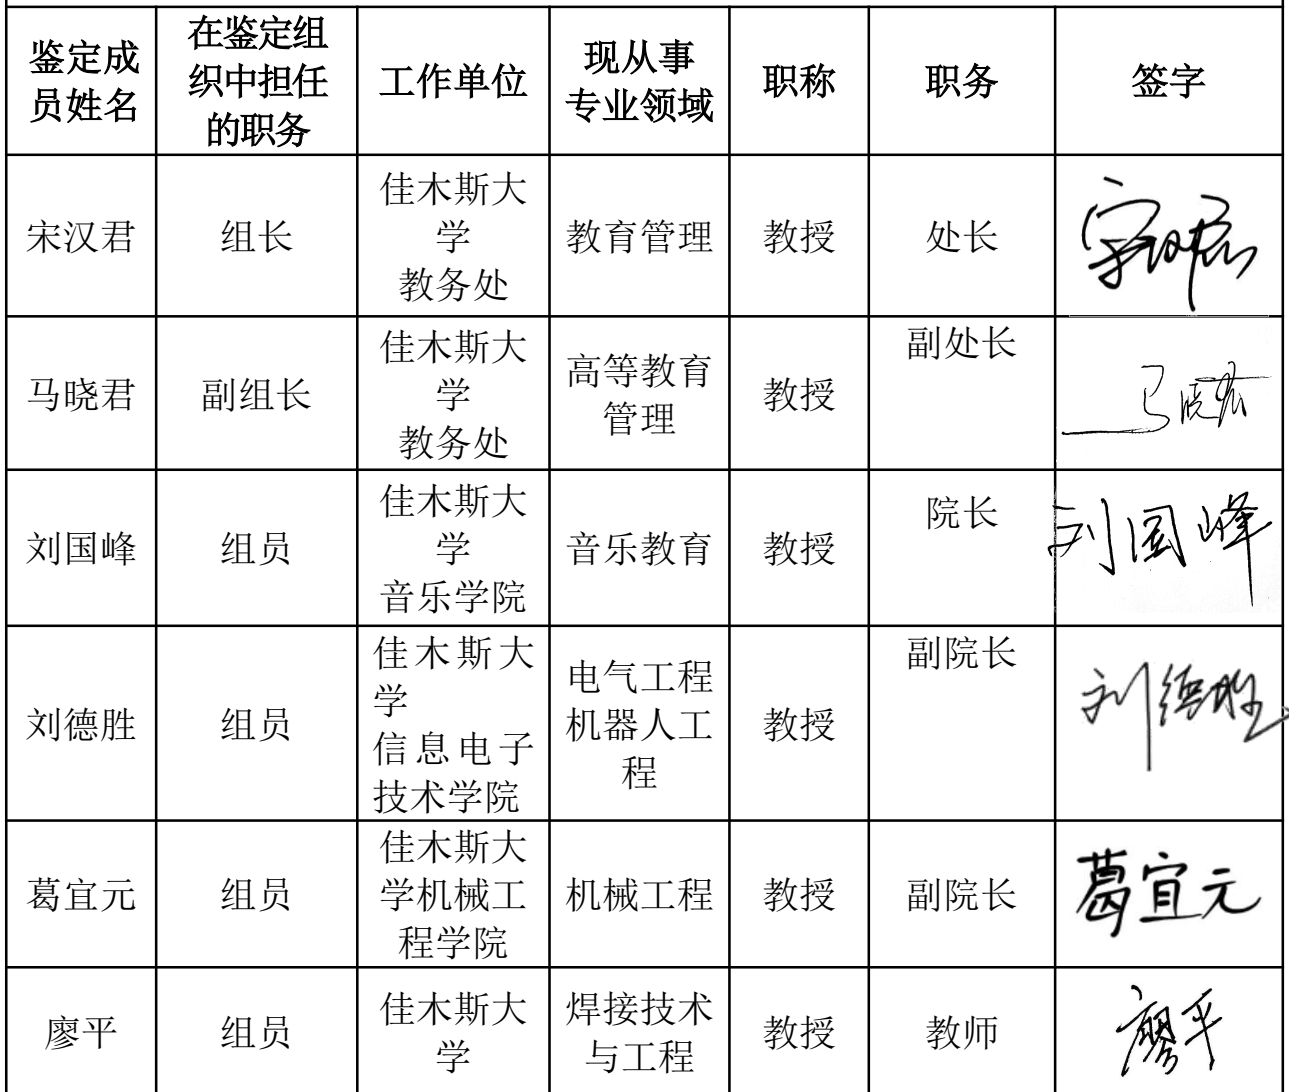 鉴定成
员姓名
在鉴定组
织中担任
的职务
工作单位
现从事
专业领域
职称
职务
签字
宋汉君
组长
佳木斯大
学
教务处
教育管理
教授
处长
宋汉君
马晓君
副组长
佳木斯大
学
教务处
高等教育
管理
教授
副处长
马晓君
刘国峰
组员
佳木斯大
学
音乐学院
音乐教育
教授
院长
刘国峰
刘德胜
组员
佳木斯大
学
信息电子
技术学院
电气工程
机器人工
程
教授
副院长
刘德胜
葛宜元
组员
佳木斯大
学机械工
程学院
机械工程
教授
副院长
葛宜元
廖平
组员
佳木斯大
学
焊接技术
与工程
教授
教师
廖平